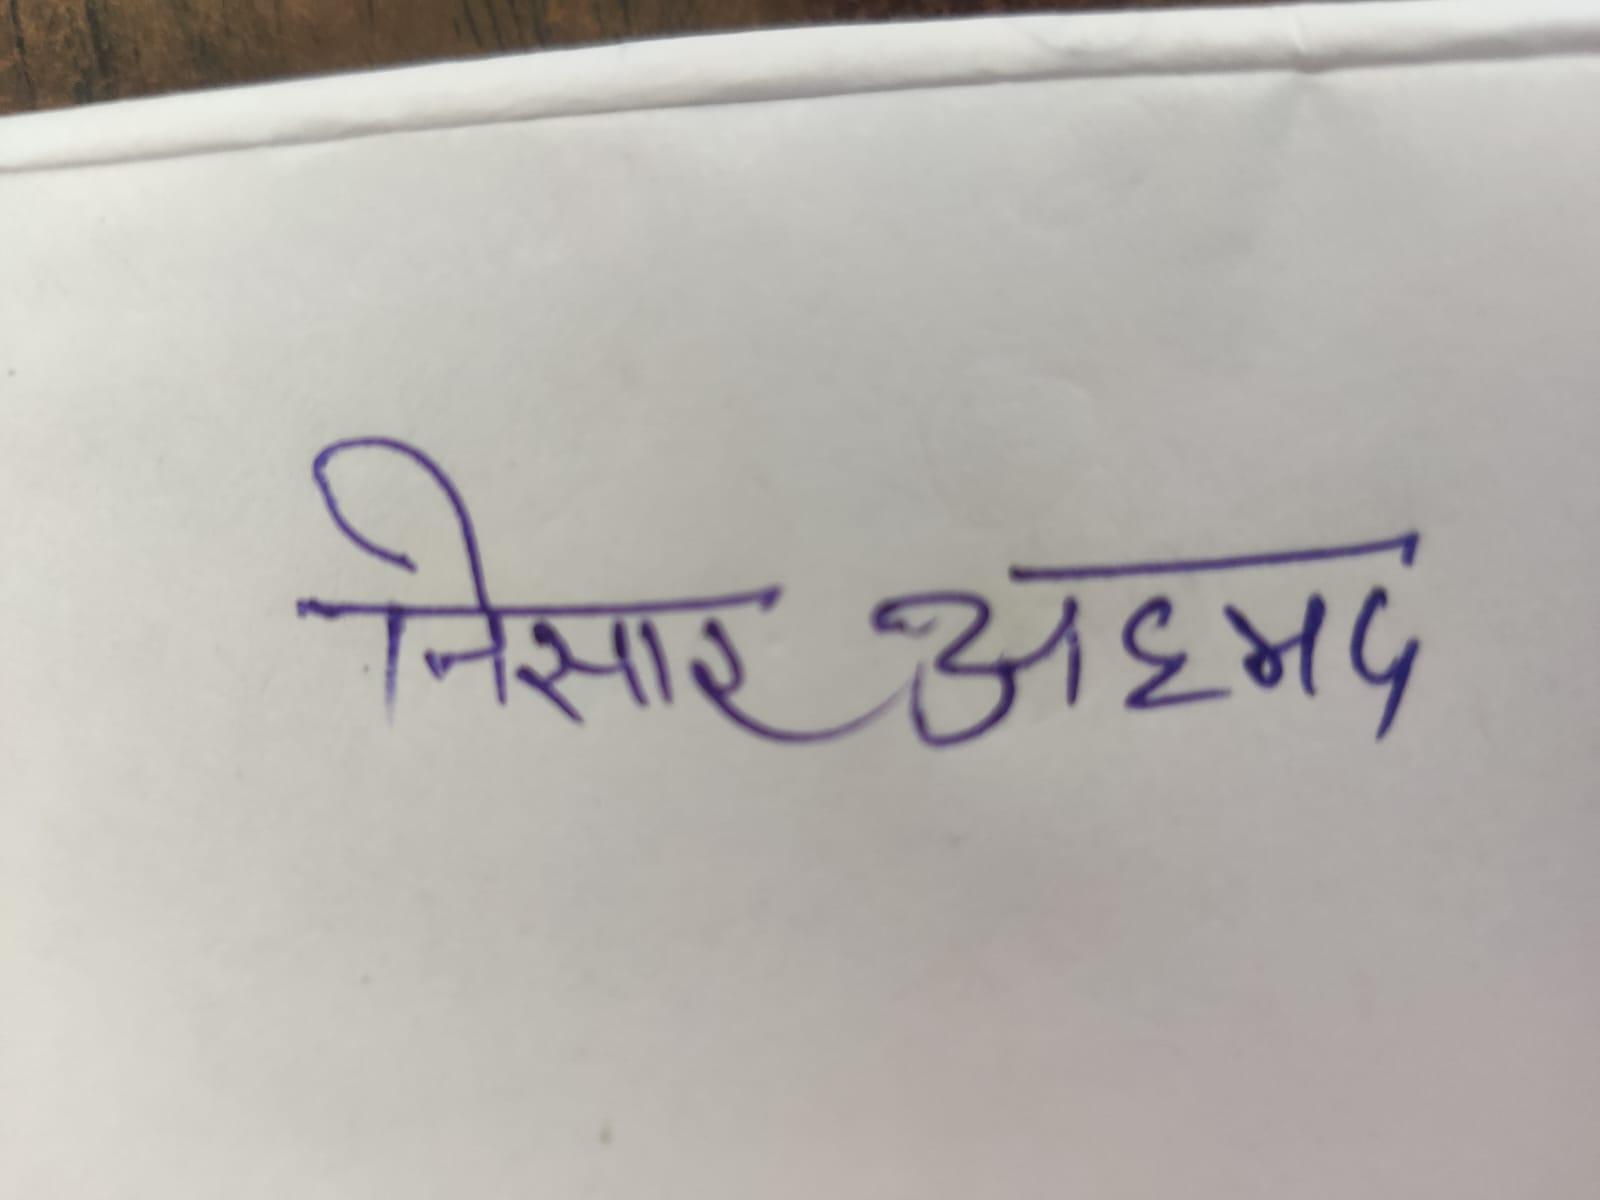 निसार अहमद